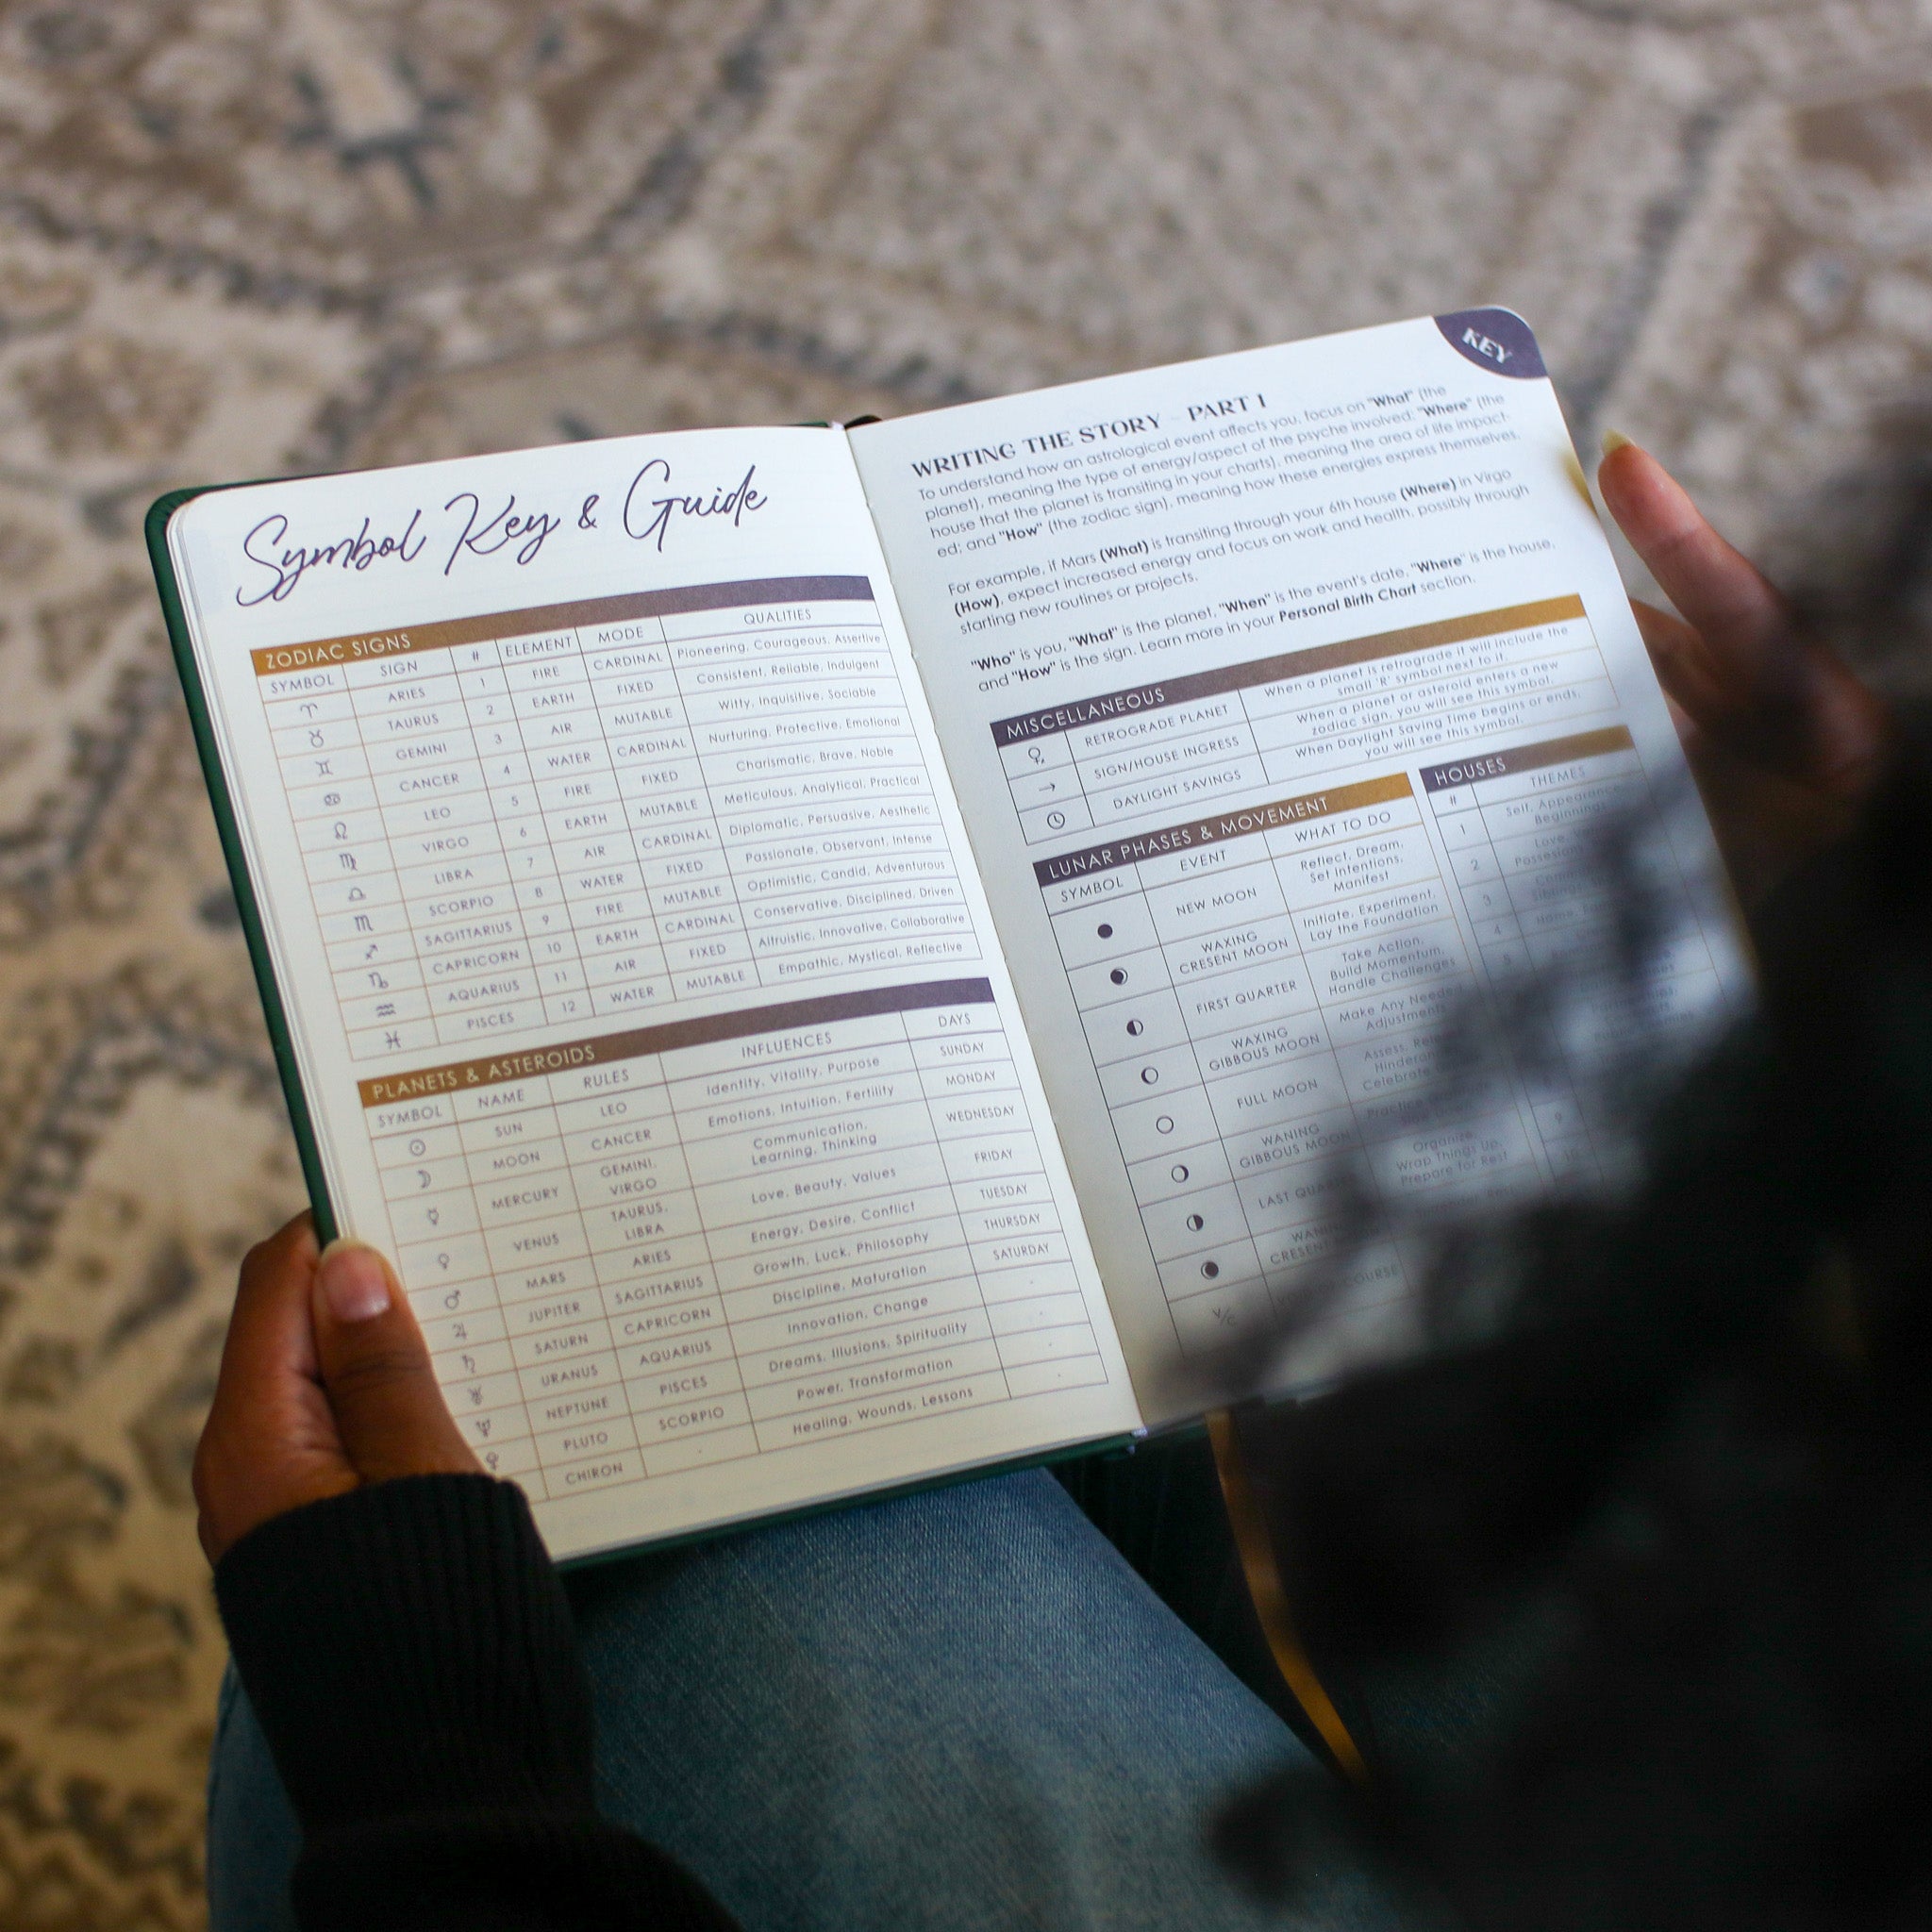 Symbol Key & Guide
ZODIAC SIGNS
SYMBOL SIGN # ELEMENT MODE QUALITIES
♈ ARIES 1 FIRE CARDINAL Pioneering, Courageous, Assertive
♉ TAURUS 2 EARTH FIXED Consistent, Reliable, Indulgent
♊ GEMINI 3 AIR MUTABLE Witty, Inquisitive, Sociable
♋ CANCER 4 WATER CARDINAL Nurturing, Protective, Emotional
♌ LEO 5 FIRE FIXED Charismatic, Brave, Noble
♍ VIRGO 6 EARTH MUTABLE Meticulous, Analytical, Practical
♎ LIBRA 7 AIR CARDINAL Diplomatic, Persuasive, Aesthetic
♏ SCORPIO 8 WATER FIXED Passionate, Observant, Intense
♐ SAGITTARIUS 9 FIRE MUTABLE Optimistic, Candid, Adventurous
♑ CAPRICORN 10 EARTH CARDINAL Conservative, Disciplined, Driven
♒ AQUARIUS 11 AIR FIXED Altruistic, Innovative, Collaborative
♓ PISCES 12 WATER MUTABLE Empathic, Mystical, Reflective
PLANETS & ASTEROIDS
SYMBOL NAME RULES INFLUENCES DAYS
☉ SUN LEO Identity, Vitality, Purpose SUNDAY
☽ MOON CANCER Emotions, Intuition, Fertility MONDAY
☿ MERCURY GEMINI, VIRGO Communication, Learning, Thinking WEDNESDAY
♀ VENUS TAURUS, LIBRA Love, Beauty, Values FRIDAY
♂ MARS ARIES Energy, Desire, Conflict TUESDAY
♃ JUPITER SAGITTARIUS Growth, Luck, Philosophy THURSDAY
♄ SATURN CAPRICORN Discipline, Maturation SATURDAY
♅ URANUS AQUARIUS Innovation, Change
♆ NEPTUNE PISCES Dreams, Illusions, Spirituality
PLUTO SCORPIO Power, Transformation
CHIRON Healing, Wounds, Lessons
KEY
WRITING THE STORY - PART 1
To understand how an astrological event affects you, focus on "What" (the
planet), meaning the type of energy/aspect of the psyche involved; "Where" (the
house that the planet is transiting in your charts), meaning the area of life impact-
ed; and "How" (the zodiac sign), meaning how these energies express themselves.
For example, if Mars (What) is transiting through your 6th house (Where) in Virgo
(How), expect increased energy and focus on work and health, possibly through
starting new routines or projects.
"Who" is you, "What" is the planet, "When" is the event's date, "Where" is the house,
and "How" is the sign. Learn more in your Personal Birth Chart section.
MISCELLANEOUS
RETROGRADE PLANET When a planet is retrograde it will include the
small 'R' symbol next to it.
→ SIGN/HOUSE INGRESS When a planet or asteroid enters a new
zodiac sign, you will see this symbol.
DAYLIGHT SAVINGS When Daylight Saving Time begins or ends,
you will see this symbol.
LUNAR PHASES & MOVEMENT
SYMBOL EVENT WHAT TO DO
NEW MOON Reflect, Dream,
Set Intentions,
Manifest
WAXING
CRESENT MOON Initiate, Experiment,
Lay the Foundation
FIRST QUARTER Take Action,
Build Momentum,
Handle Challenges
WAXING
GIBBOUS MOON Make Any Needed
Adjustments
FULL MOON Assess,
Celebrate
WANING
GIBBOUS MOON
LAST Organize,
Wrap Things Up,
Prepare for Rest
CRESENT
V/C COURSE
HOUSES
# THEMES
1 Self, Appearance
Beginnings
2 Love,
3
4
5
9